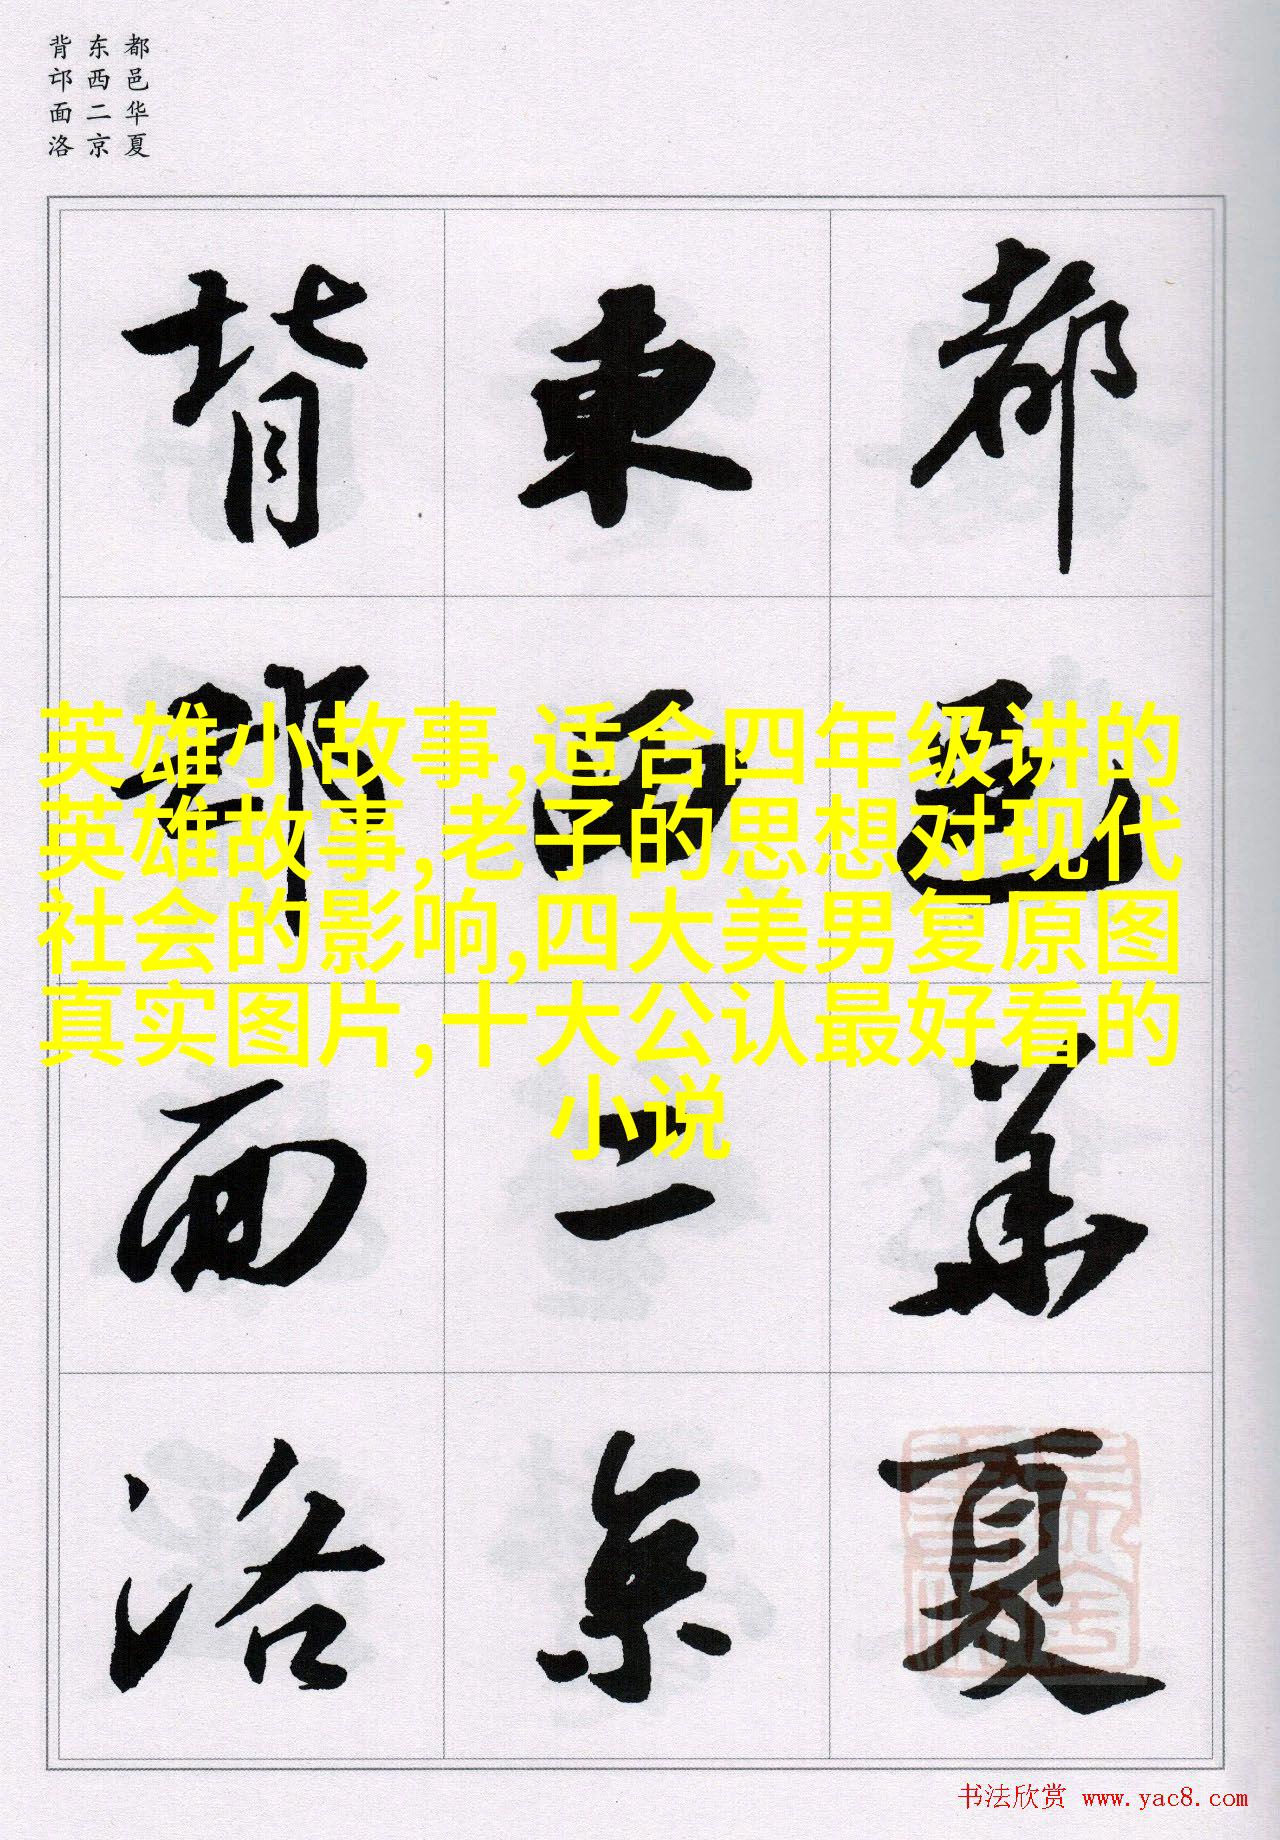 都邑华夏
东西二京
背邙面洛
都邑華夏
東西二京
背邙面洛
英雄小故事,适合四年级讲的
英雄故事,老子的思想对现代
社会的影响,四大美男复原图
真实图片,十大公认最好看的
小说
书法欣赏 www.yac8.com